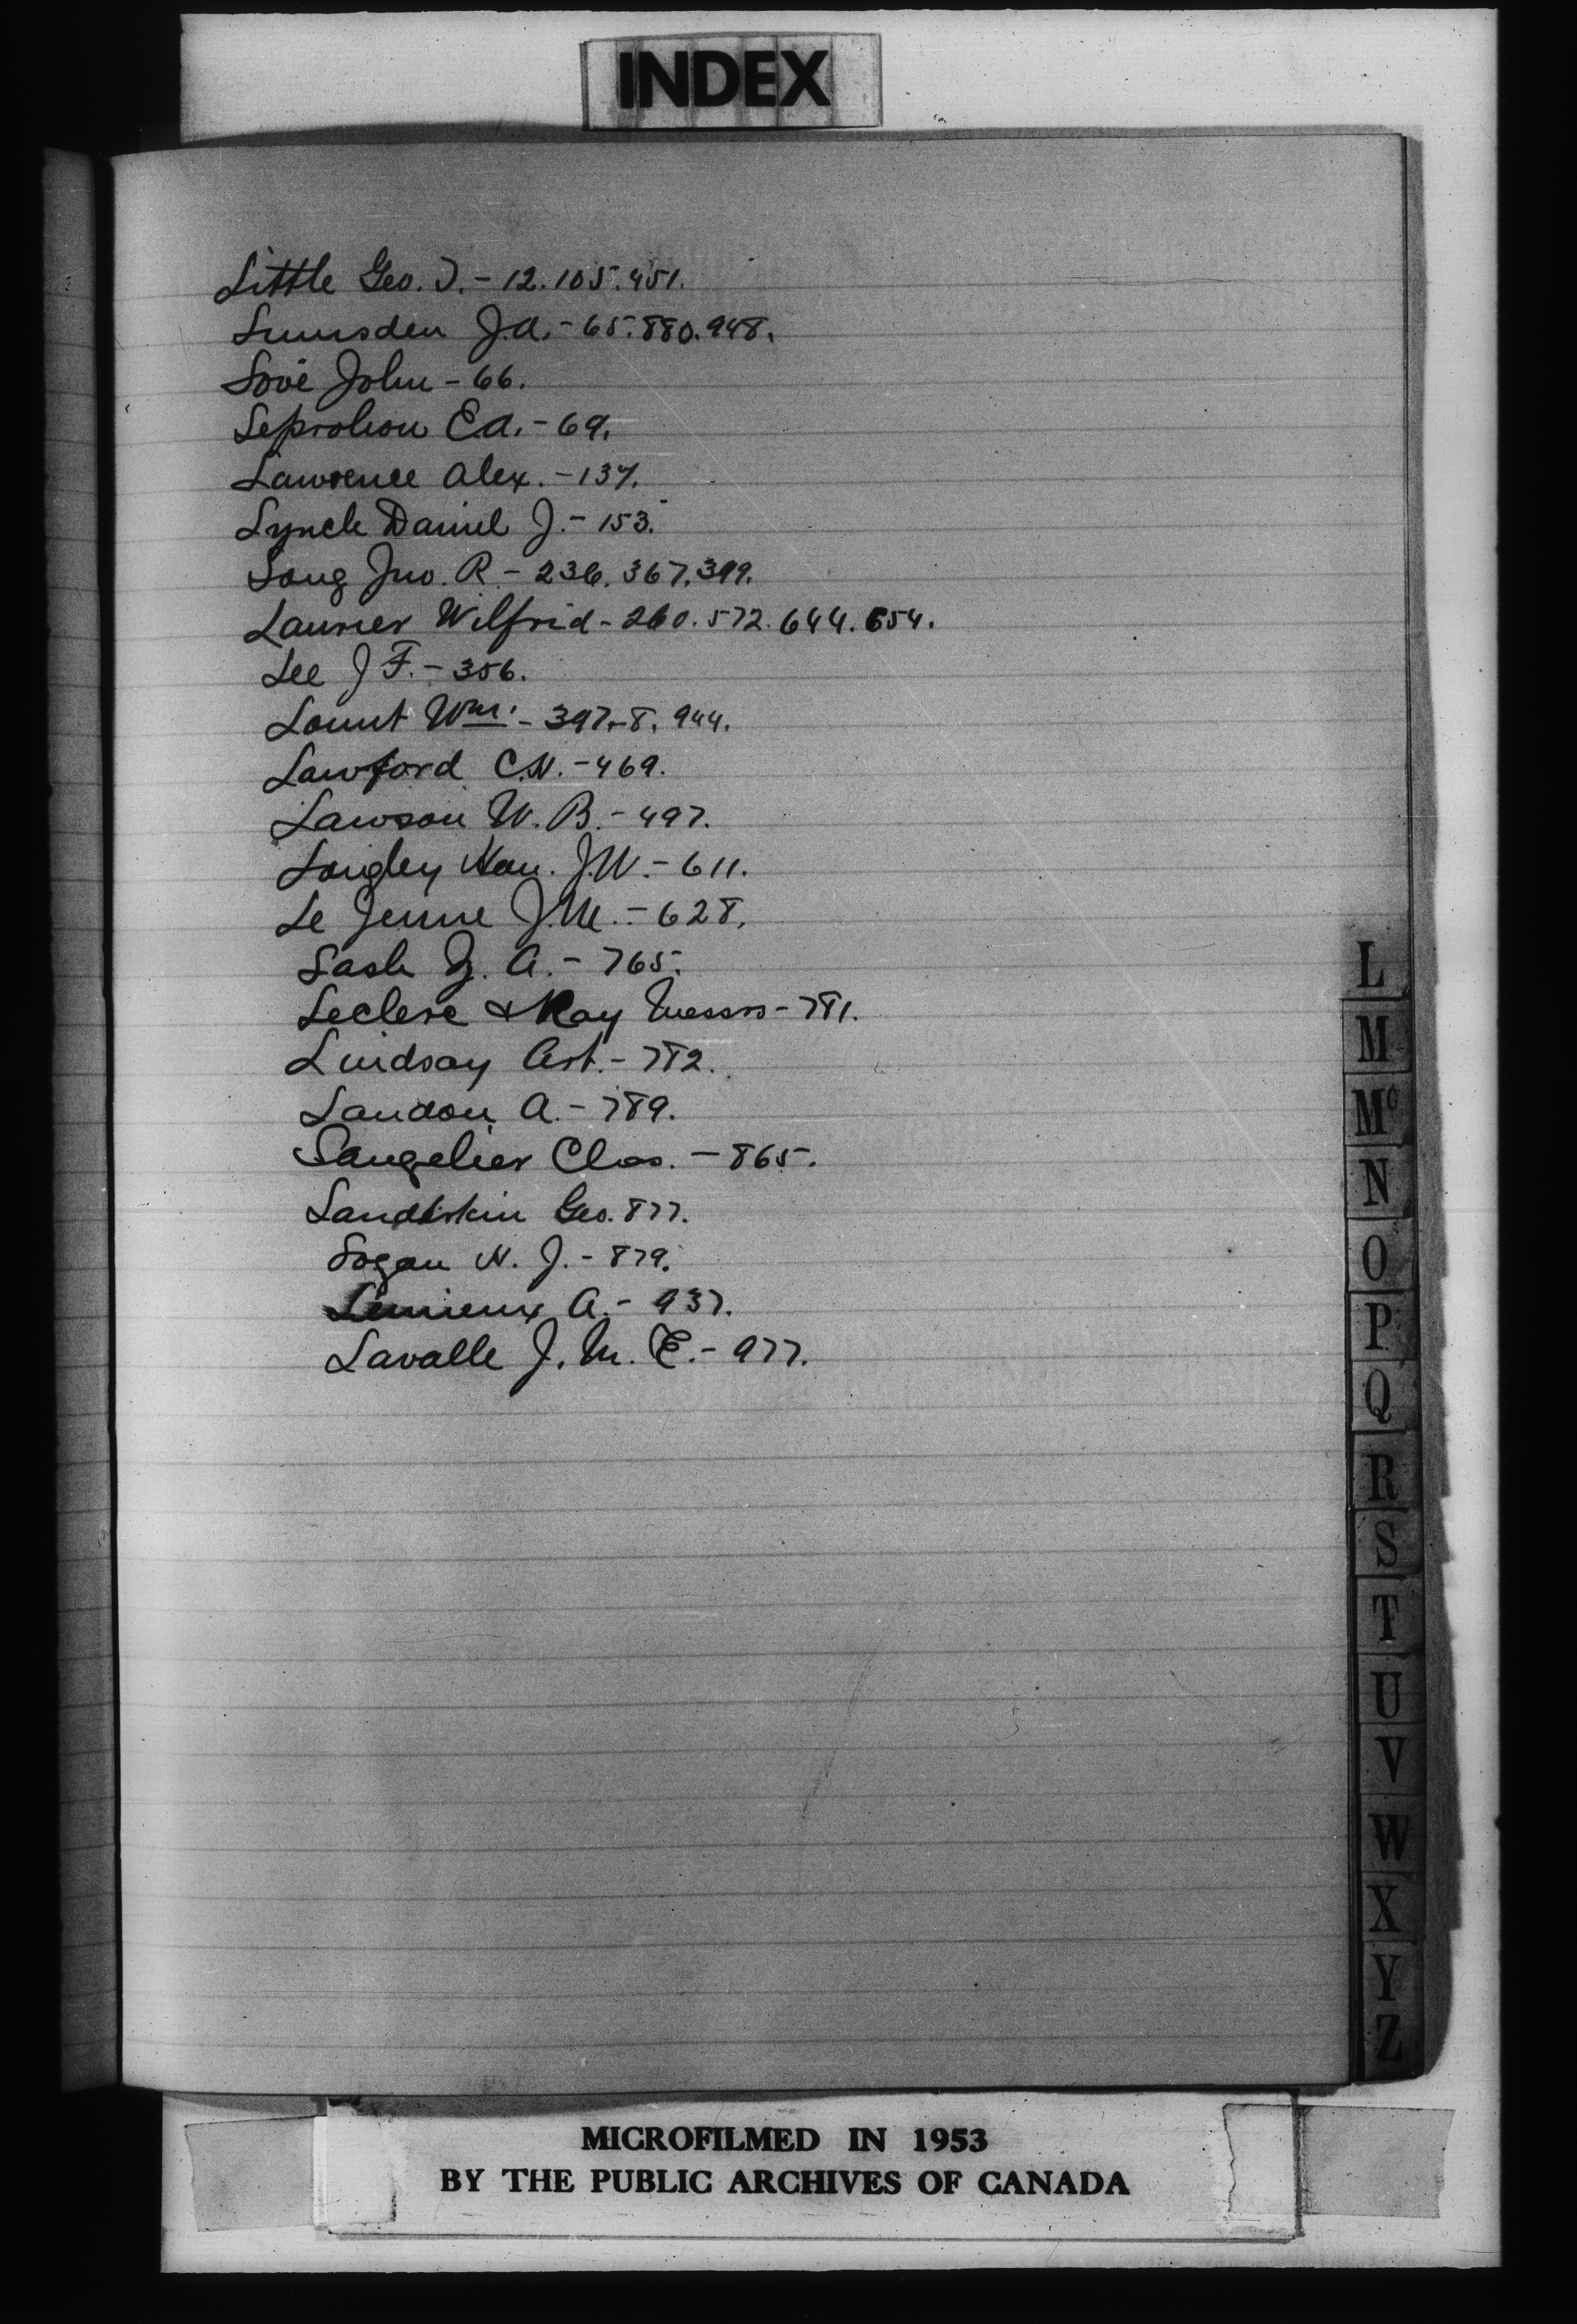 INDEX
Little Geo. T. - 12. 105. 451.
Lumsden J.A. - 65. 880. 948.
Lovè John - 66.
Leprohon E.A. - 69.
Lawrence Alex. - 137.
Lynch Daniel J. - 153.
Long Jno. R. - 236. 367. 399.
Laurier Wilfrid - 260. 572. 644. 654.
Lee J F. - 356.
Lount Wm. - 397-8. 944.
Lawford C.N. - 469.
Lawson W. B. - 497.
Longley Hon. J.W. - 611.
Le Jeune J.M. - 628.
Lash Z. A. - 765.
Leclerc & Roy Messrs - 781.
Lindsay Art. - 782.
Landon A. - 789.
Langelier Chas. - 865.
Landerkin Geo. 877.
Logan H. J. - 879.
Lemieux A. - 937.
Lavalle J. M. E. - 977.
L
M
Mc
N
O
P
Q
R
S
T
U
V
W
X
Y
Z
MICROFILMED IN 1953
BY THE PUBLIC ARCHIVES OF CANADA